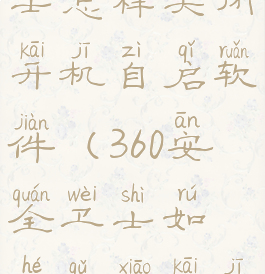 士怎样关闭
kāi jī zì qǐ ruǎn
开机自启软
jiàn ān
件（360安
quán wèi shì rú
全卫士如
hé qǔ xiāo kāi jī